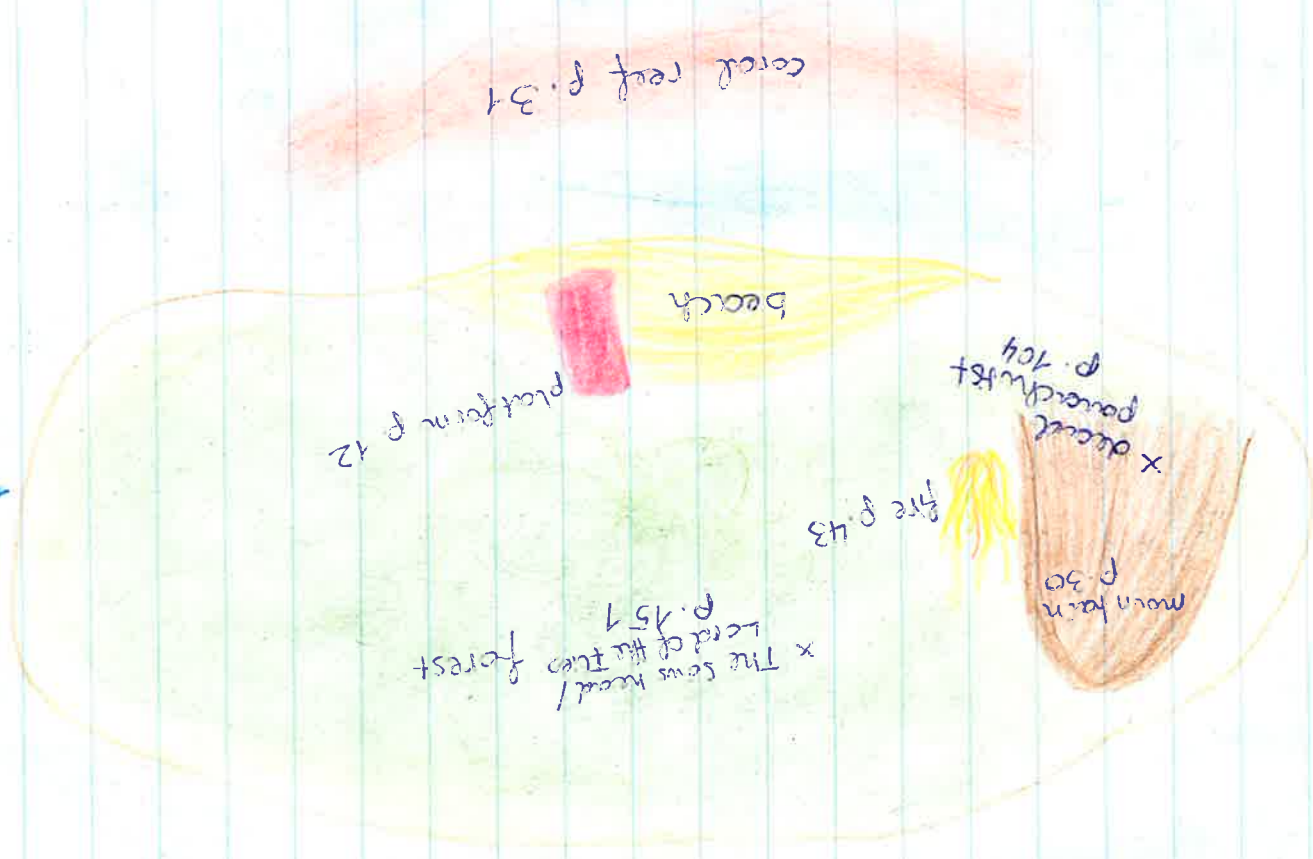 mountain
p. 30
x The sows head /
Lord of the Flies
p. 151
forest
fire p. 43
x
dead
parachutist
p. 104
platform p 12
beach
coral reef p. 31